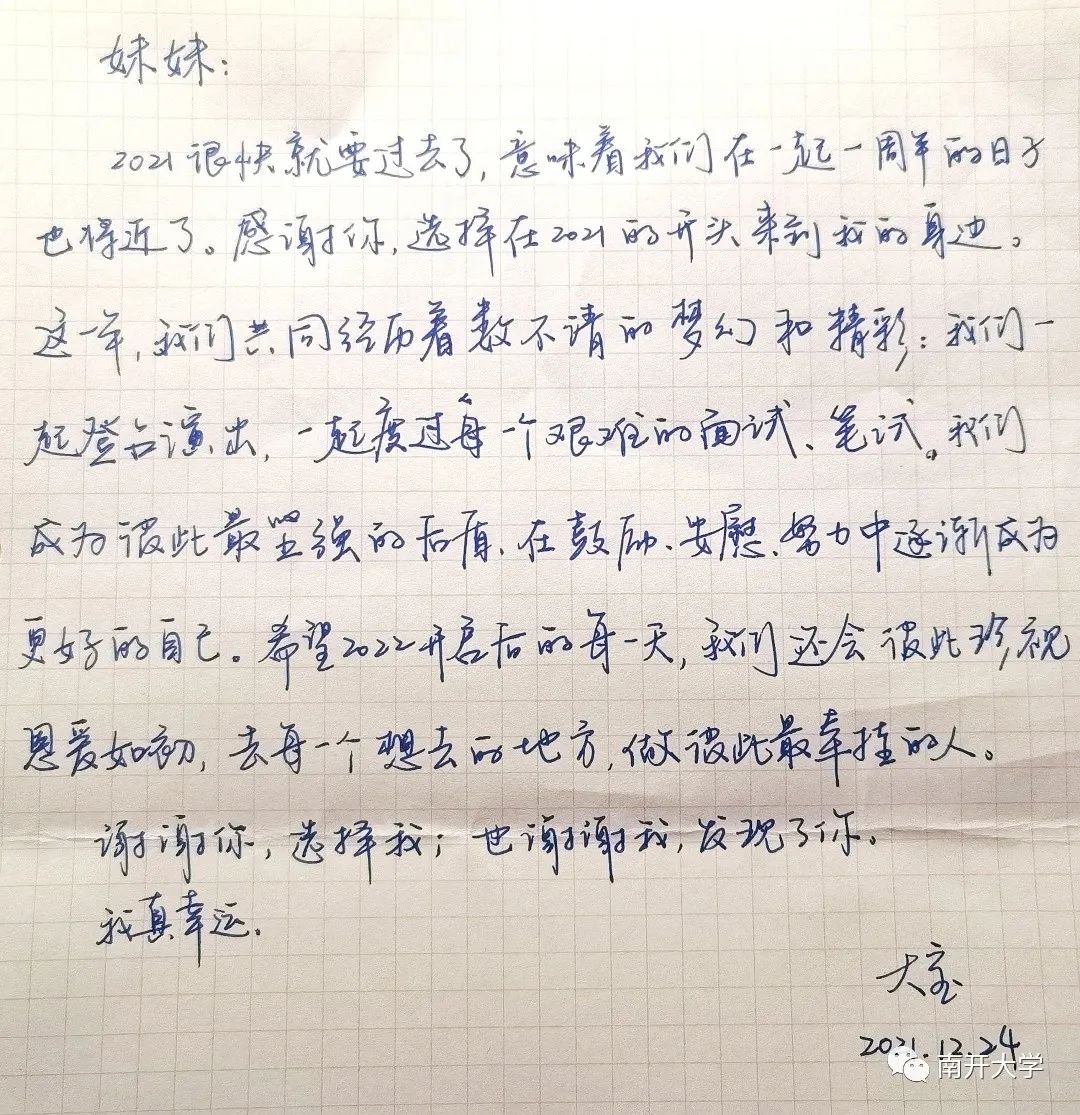 妹妹：
2021很快就要过去了，意味着我们在一起一周年的日子
也将近了。感谢你，选择在2021的开头来到我的身边。
这一年，我们共同经历着数不清的梦幻和精彩：我们一
起登台演出，一起度过每一个艰难的面试、笔试。我们
成为彼此最坚强的后盾，在鼓励、安慰、努力中逐渐成为
更好的自己。希望2022开启后的每一天，我们还会彼此珍视
恩爱如初，去每一个想去的地方，做彼此最牵挂的人。
谢谢你，选择我；也谢谢我，发现了你。
我真幸运。
大宝
2021.12.24
南开大学